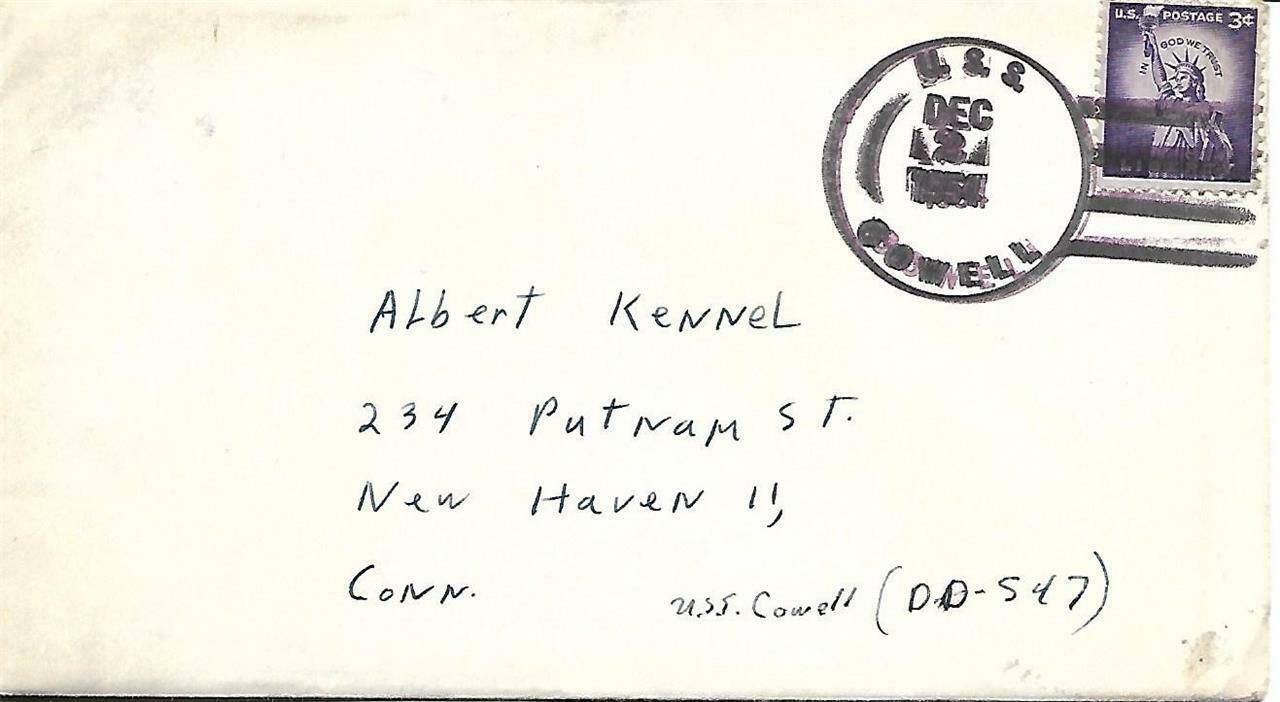 U.S. POSTAGE 3¢
IN GOD WE TRUST
U.S.S.
DEC
2
1954
COWELL
Albert Kennel
234 Putnam St.
New Haven 11,
Conn.
U.S.S. Cowell (DD-547)